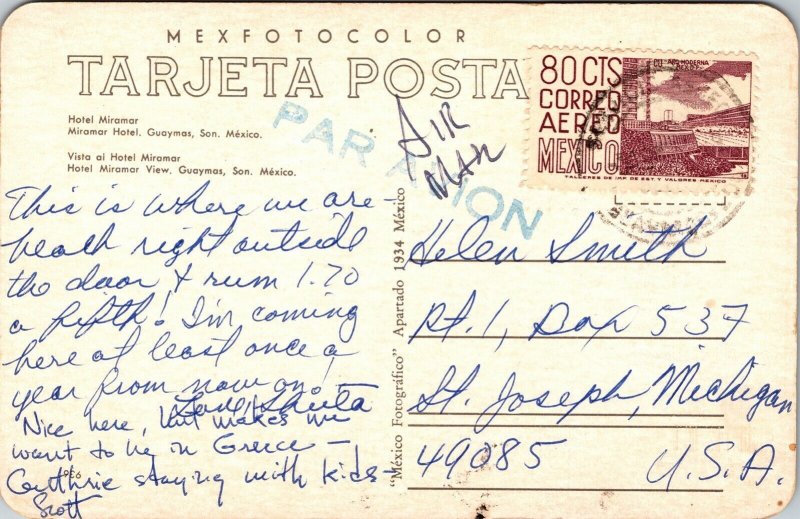 MEXFOTOCOLOR
TARJETA POSTA
Hotel Miramar
Miramar Hotel. Guaymas, Son. México.
Vista al Hotel Miramar
Hotel Miramar View, Guaymas, Son. México.
PAR AVION
AIR
MAIL
80 CTS
CORREO
AEREO
MEXICO
ARQ MODERNA
MEX D F
TALLERES DE IMP. DE EST. Y VALORES MEXICO
This is where we are -
beach right outside
the door, & rum 1.70
a fifth! I'm coming
here at least once a
year from now on.
Love,
Nice here, but makes me
want to be in Greece -
Guthrie staying with kids +
Scott
"México Fotográfico" Apartado 1934 México
Helen Smith
Rt. 1, Box 537
St. Joseph, Michigan
49085 U.S.A.